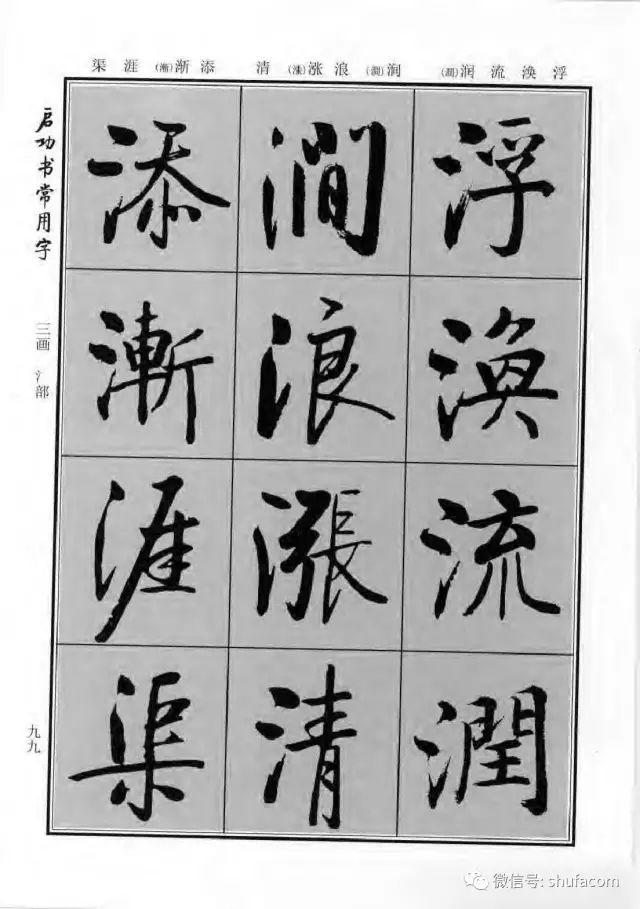 浮涣流润(潤) 涧(澗)浪涨(漲)清 添渐(漸)涯渠
浮渙流潤
澗浪漲清
添漸涯渠
启功书常用字
三画 氵部
九九
微信号: shufacom